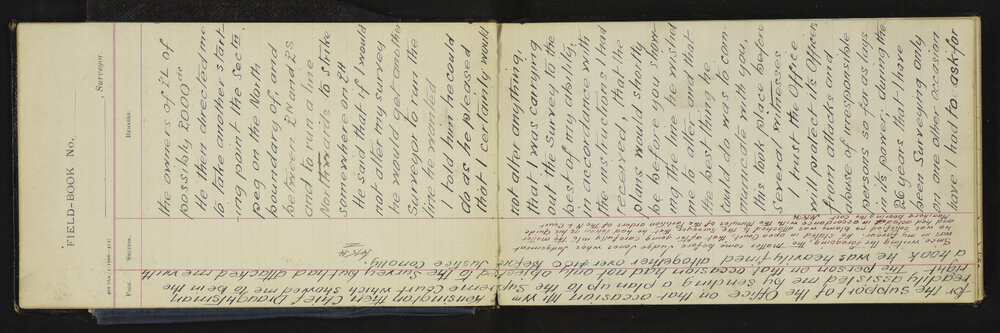 FIELD-BOOK No.
Surveyor.
PAGE.
SECTION.
REMARKS.
the owners of 2L of
possibly 2000 ac
He then directed me
to take another start-
-ing point the Sectn
peg on the North
boundary of, and
between 2N and 2S
and to run a line
Northwards to strike
somewhere on 2H
He said that if I would
not alter my survey
he would get another
Surveyor to run the
line he wanted
I told him he could
do as he pleased
that I certainly would
not alter anything,
that I was carrying
out the Survey to the
best of my ability,
in accordance with
the instructions I had
received, that the
plans would shortly
be before you show-
ing the line he wished
me to alter and that
the best thing he
could do was to com
municate with you,
this took place before
several witnesses
I trust the Office
will protect its Officers
from attacks and
abuse of irresponsible
persons so far as lays
in its power, during the
26 years that I have
been Surveying only
on one other occasion
have I had to ask for
for the support of the Office on that occasion Mr Wm
Kensington then Chief Draughtsman
readily assisted me by sending a plan up to the Supreme Court which showed me to be in the
right. The person on that occasion had not only objected to the Survey but had attacked me with
a hook he was heavily fined altogether over £100 before Justice Connolly
HKH
Since writing the foregoing, the Matter came before Judge Jones whose Judgement
was in my favour. He stated in open Court, that after going carefully into the matter
was satisfied no blame was attached to the Surveyor, that he had taken as his guide
and had acted in accordance with the Minutes of the partition orders of the N L Court
Numbers bearing on the case HKH